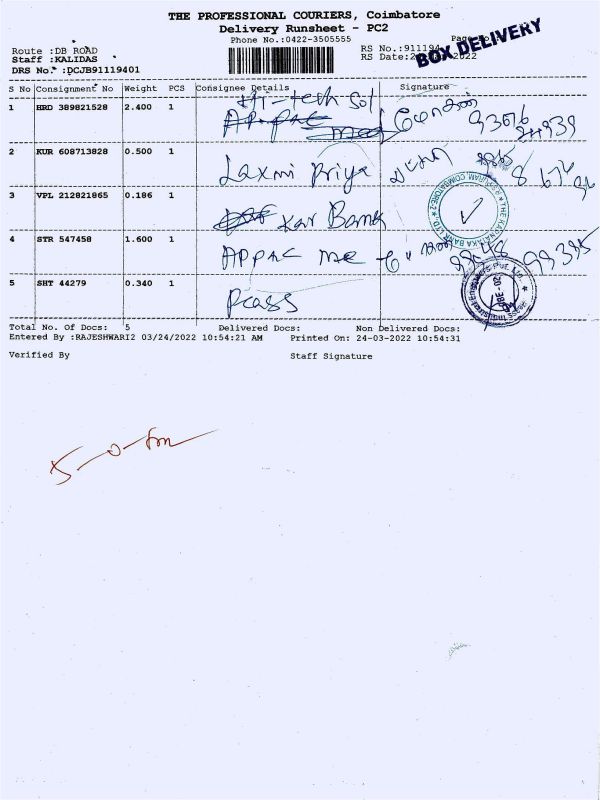 THE PROFESSIONAL COURIERS, Coimbatore
Delivery Runsheet - PC2
Phone No.:0422-3505555
BOX DELIVERY
Route :DB ROAD
Staff :KALIDAS
DRS No. :DCJB91119401
RS No.:911194
RS Date:
2022
S No Consignment No Weight PCS Consignee Details Signature
1 HRD 389821528 2.400 1 Hi-tech Sol
2 KUR 608713828 0.500 1 Laxmi Priya
3 VPL 212821865 0.186 1 Kar Bank
4 STR 547458 1.600 1 APPAC
5 SHT 44279 0.340 1 Pcass
THE KARNATAKA BANK LTD. R.S.PURAM, COIMBATORE-2
Total No. Of Docs: 5 Delivered Docs: Non Delivered Docs:
Entered By :RAJESHWARI2 03/24/2022 10:54:21 AM Printed On: 24-03-2022 10:54:31
Verified By Staff Signature